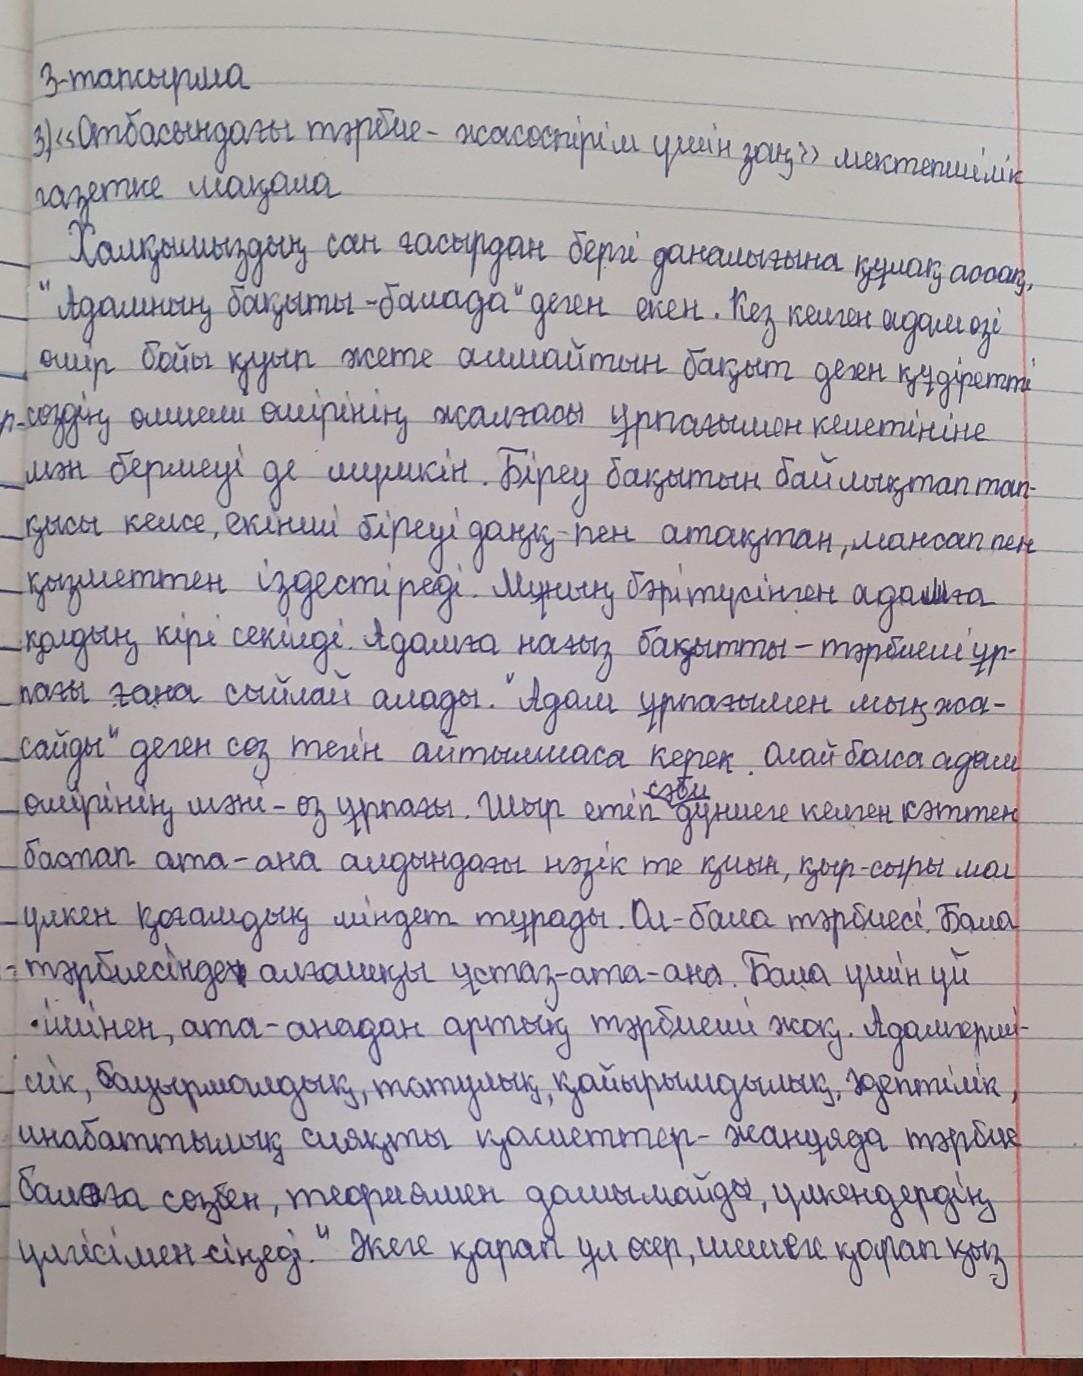 3-тапсырма
3) «Отбасындағы тәрбие - жасөспірім үшін заң» мектепшілік
газетке мақала
Халқымыздың сан ғасырдан бергі даналығына құлақ ассақ,
"Адамның бақыты - балада" деген екен. Кез келген адам өзі
өмір бойы қуып жете алмайтын бақыт деген құдіретті
сөздің өлшемі өмірінің жалғасы ұрпағымен келетініне
мән бермеуі де мүмкін. Біреу бақытын байлықтап тап-
қысы келсе, екінші біреуі даңқ-пен атақтан, мансап пен
қызметтен іздестіреді. Мұның бәрі түсінген адамға
қолдың кірі секілді. Адамға нағыз бақытты - тәрбиелі ұр-
пағы ғана сыйлай алады. "Адам ұрпағымен мың жа-
сайды" деген сөз тегін айтылмаса керек. Олай болса адам
өмірінің мәні - өз ұрпағы. Шыр етіп сәби дүниеге келген кәттен
бастап ата-ана алдындағы нәзік те қиын, қыр-сыры мол
үлкен қоғамдық міндет тұрады. Ол-бала тәрбиесі. Бала
тәрбиесінде алғашқы ұстаз-ата-ана. Бала үшін үй
ішінен, ата-анадан артық тәрбиеші жоқ. Адамгерші-
лік, бауырмалдық, татулық, қайырымдылық, әдептілік,
инабаттылық сияқты қасиеттер - жанұяда тәрбие
балаға сөзбен, теориямен дарымайды, үлкендердің
үлгісімен сіңеді." Әкеге қарап ұл өсер, шешеге қарап қыз